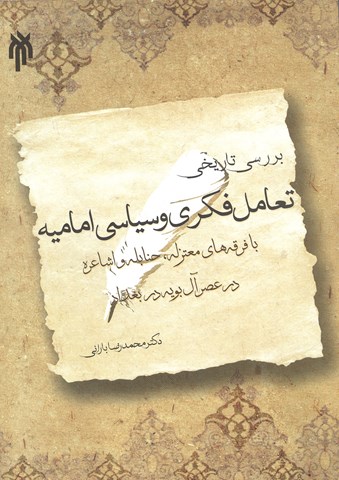 بررسی تاریخی
تعامل فکری و سیاسی امامیه
با فرقه‌های معتزله، حنابله و اشاعره
در عصر آل بویه در بغداد
دکتر محمدرضا بارانی